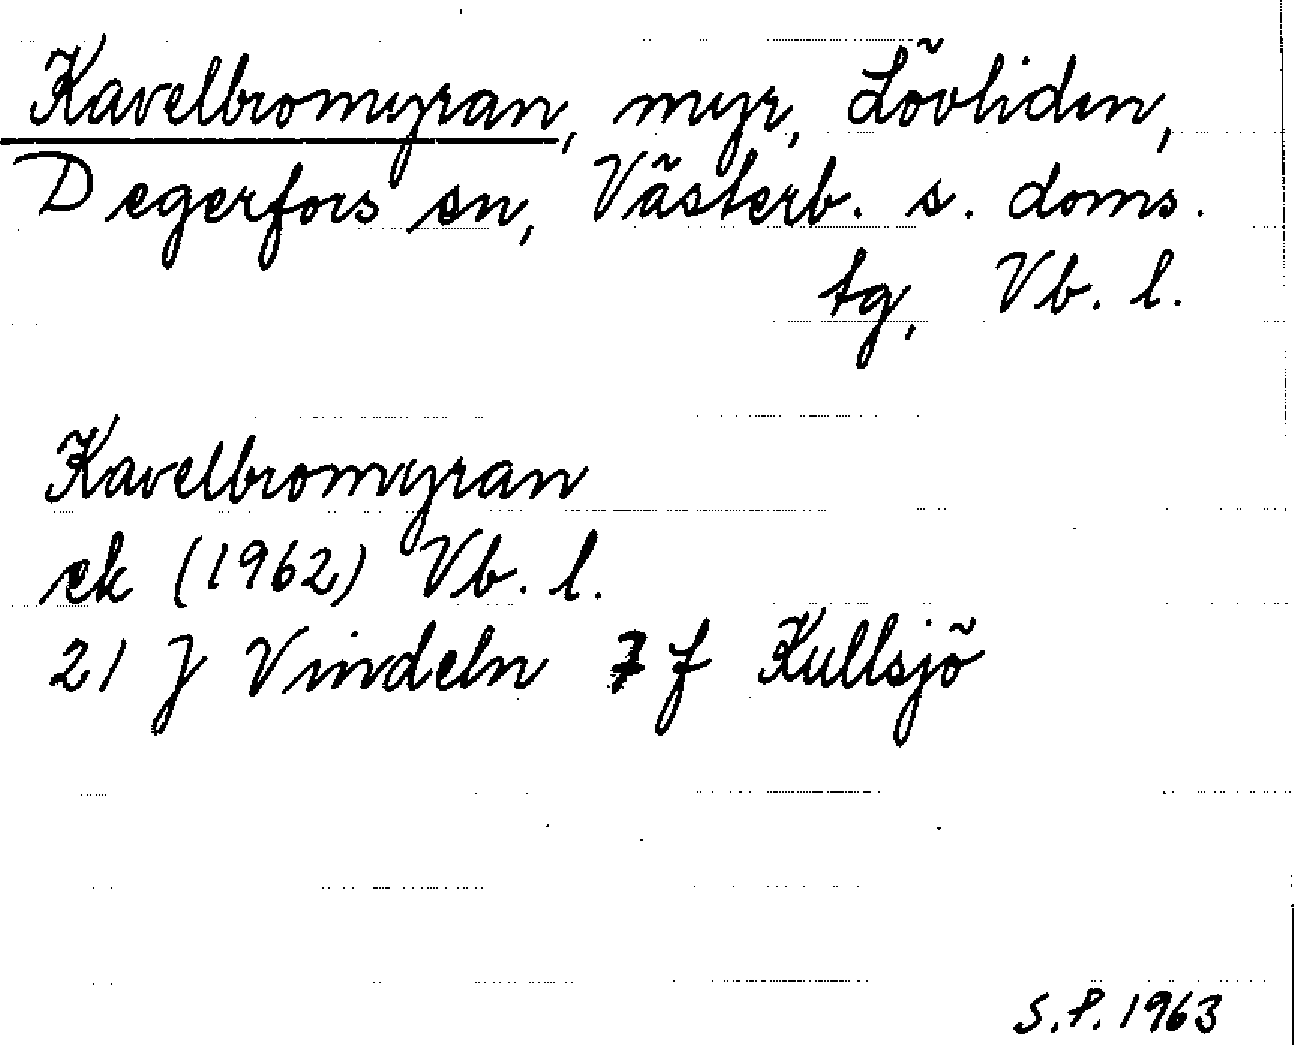 Kavelbromyran, myr, Lövliden,
Degerfors sn, Västerb. s. doms.
tg, Vb. l.
Kavelbromyran
ek (1962) Vb. l.
21 J Vindeln 7 f Kullsjö
S.P. 1963